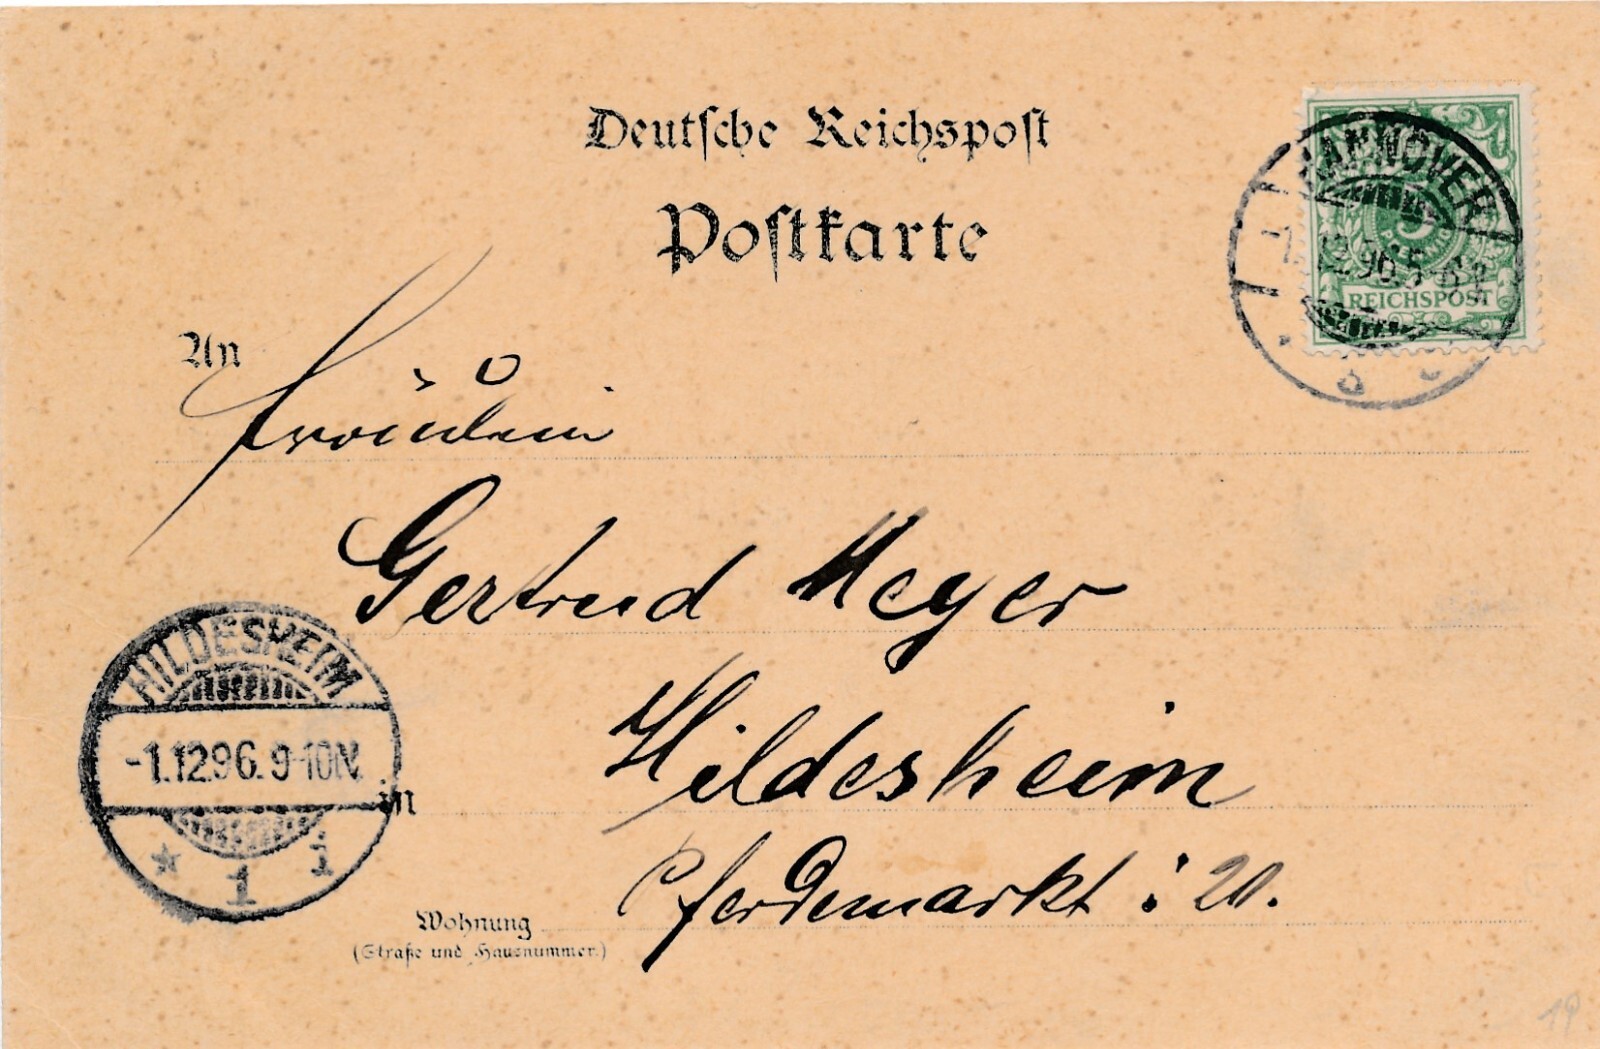 Deutsche Reichspost
Postkarte
HANNOVER
12.96.5-6
REICHSPOST
An
Fräulein
Gertrud Meyer
HILDESHEIM
-1.12.96.9-10N.
1
in
Hildesheim
Pferdemarkt : 20.
Wohnung
(Straße und Hausnummer.)